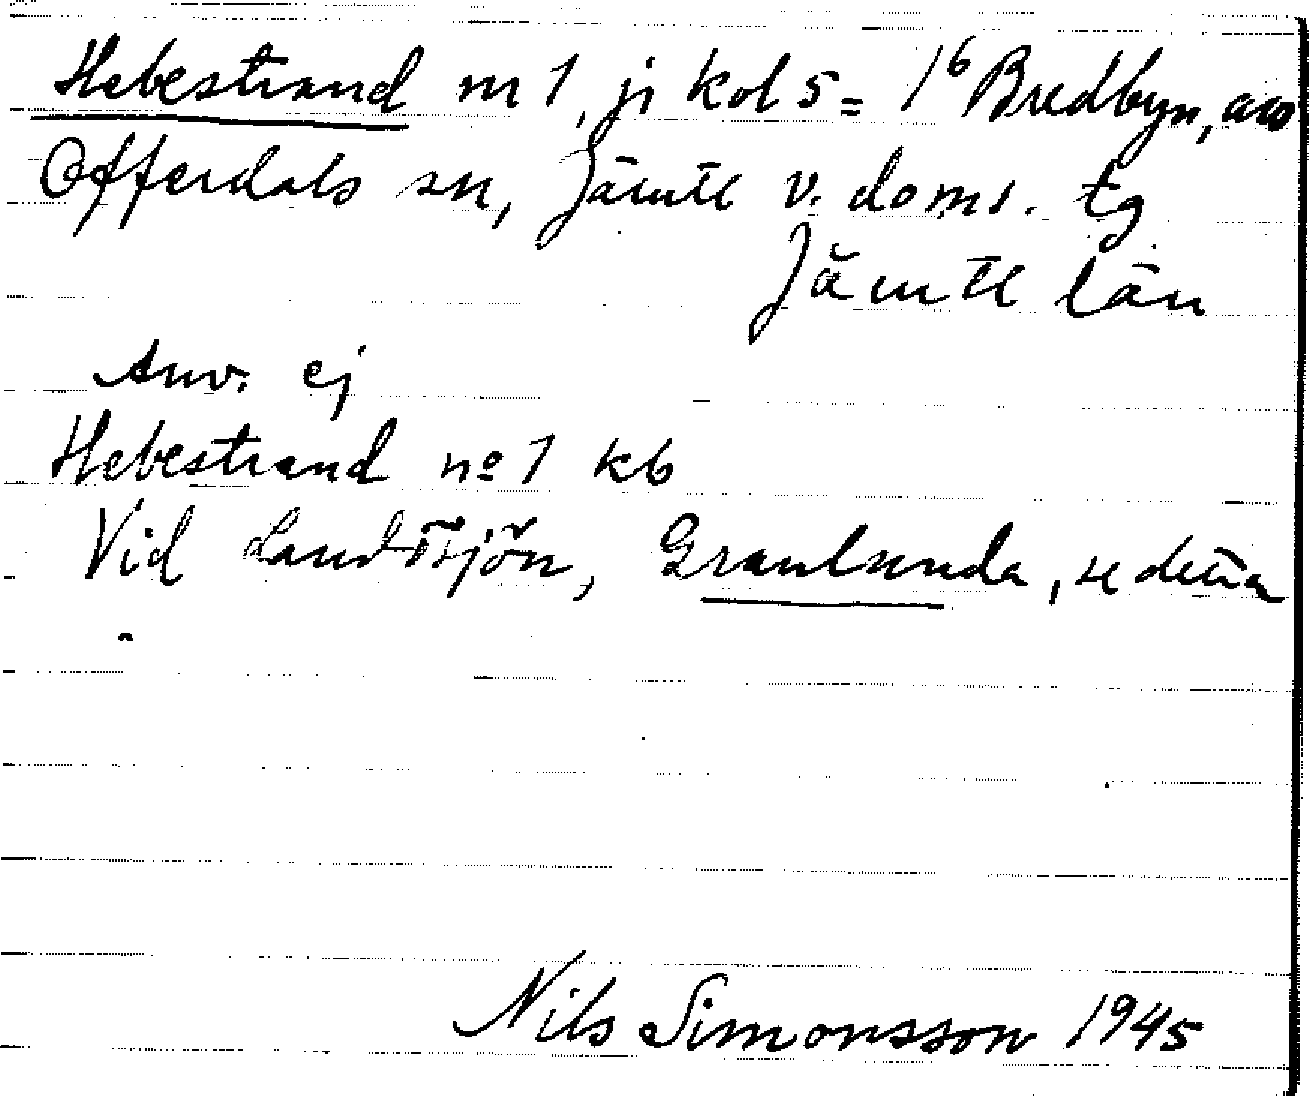 Hebestrand nr 1, jr kol 5 = 1⁶ Bredbyn, avs
Offerdals sn, Jämtl v. doms. tg
Jämtl län
Anv. ej
Hebestrand no 1 kb
Vid Landösjön, Granlunda, se detta
Nils Simonsson 1945